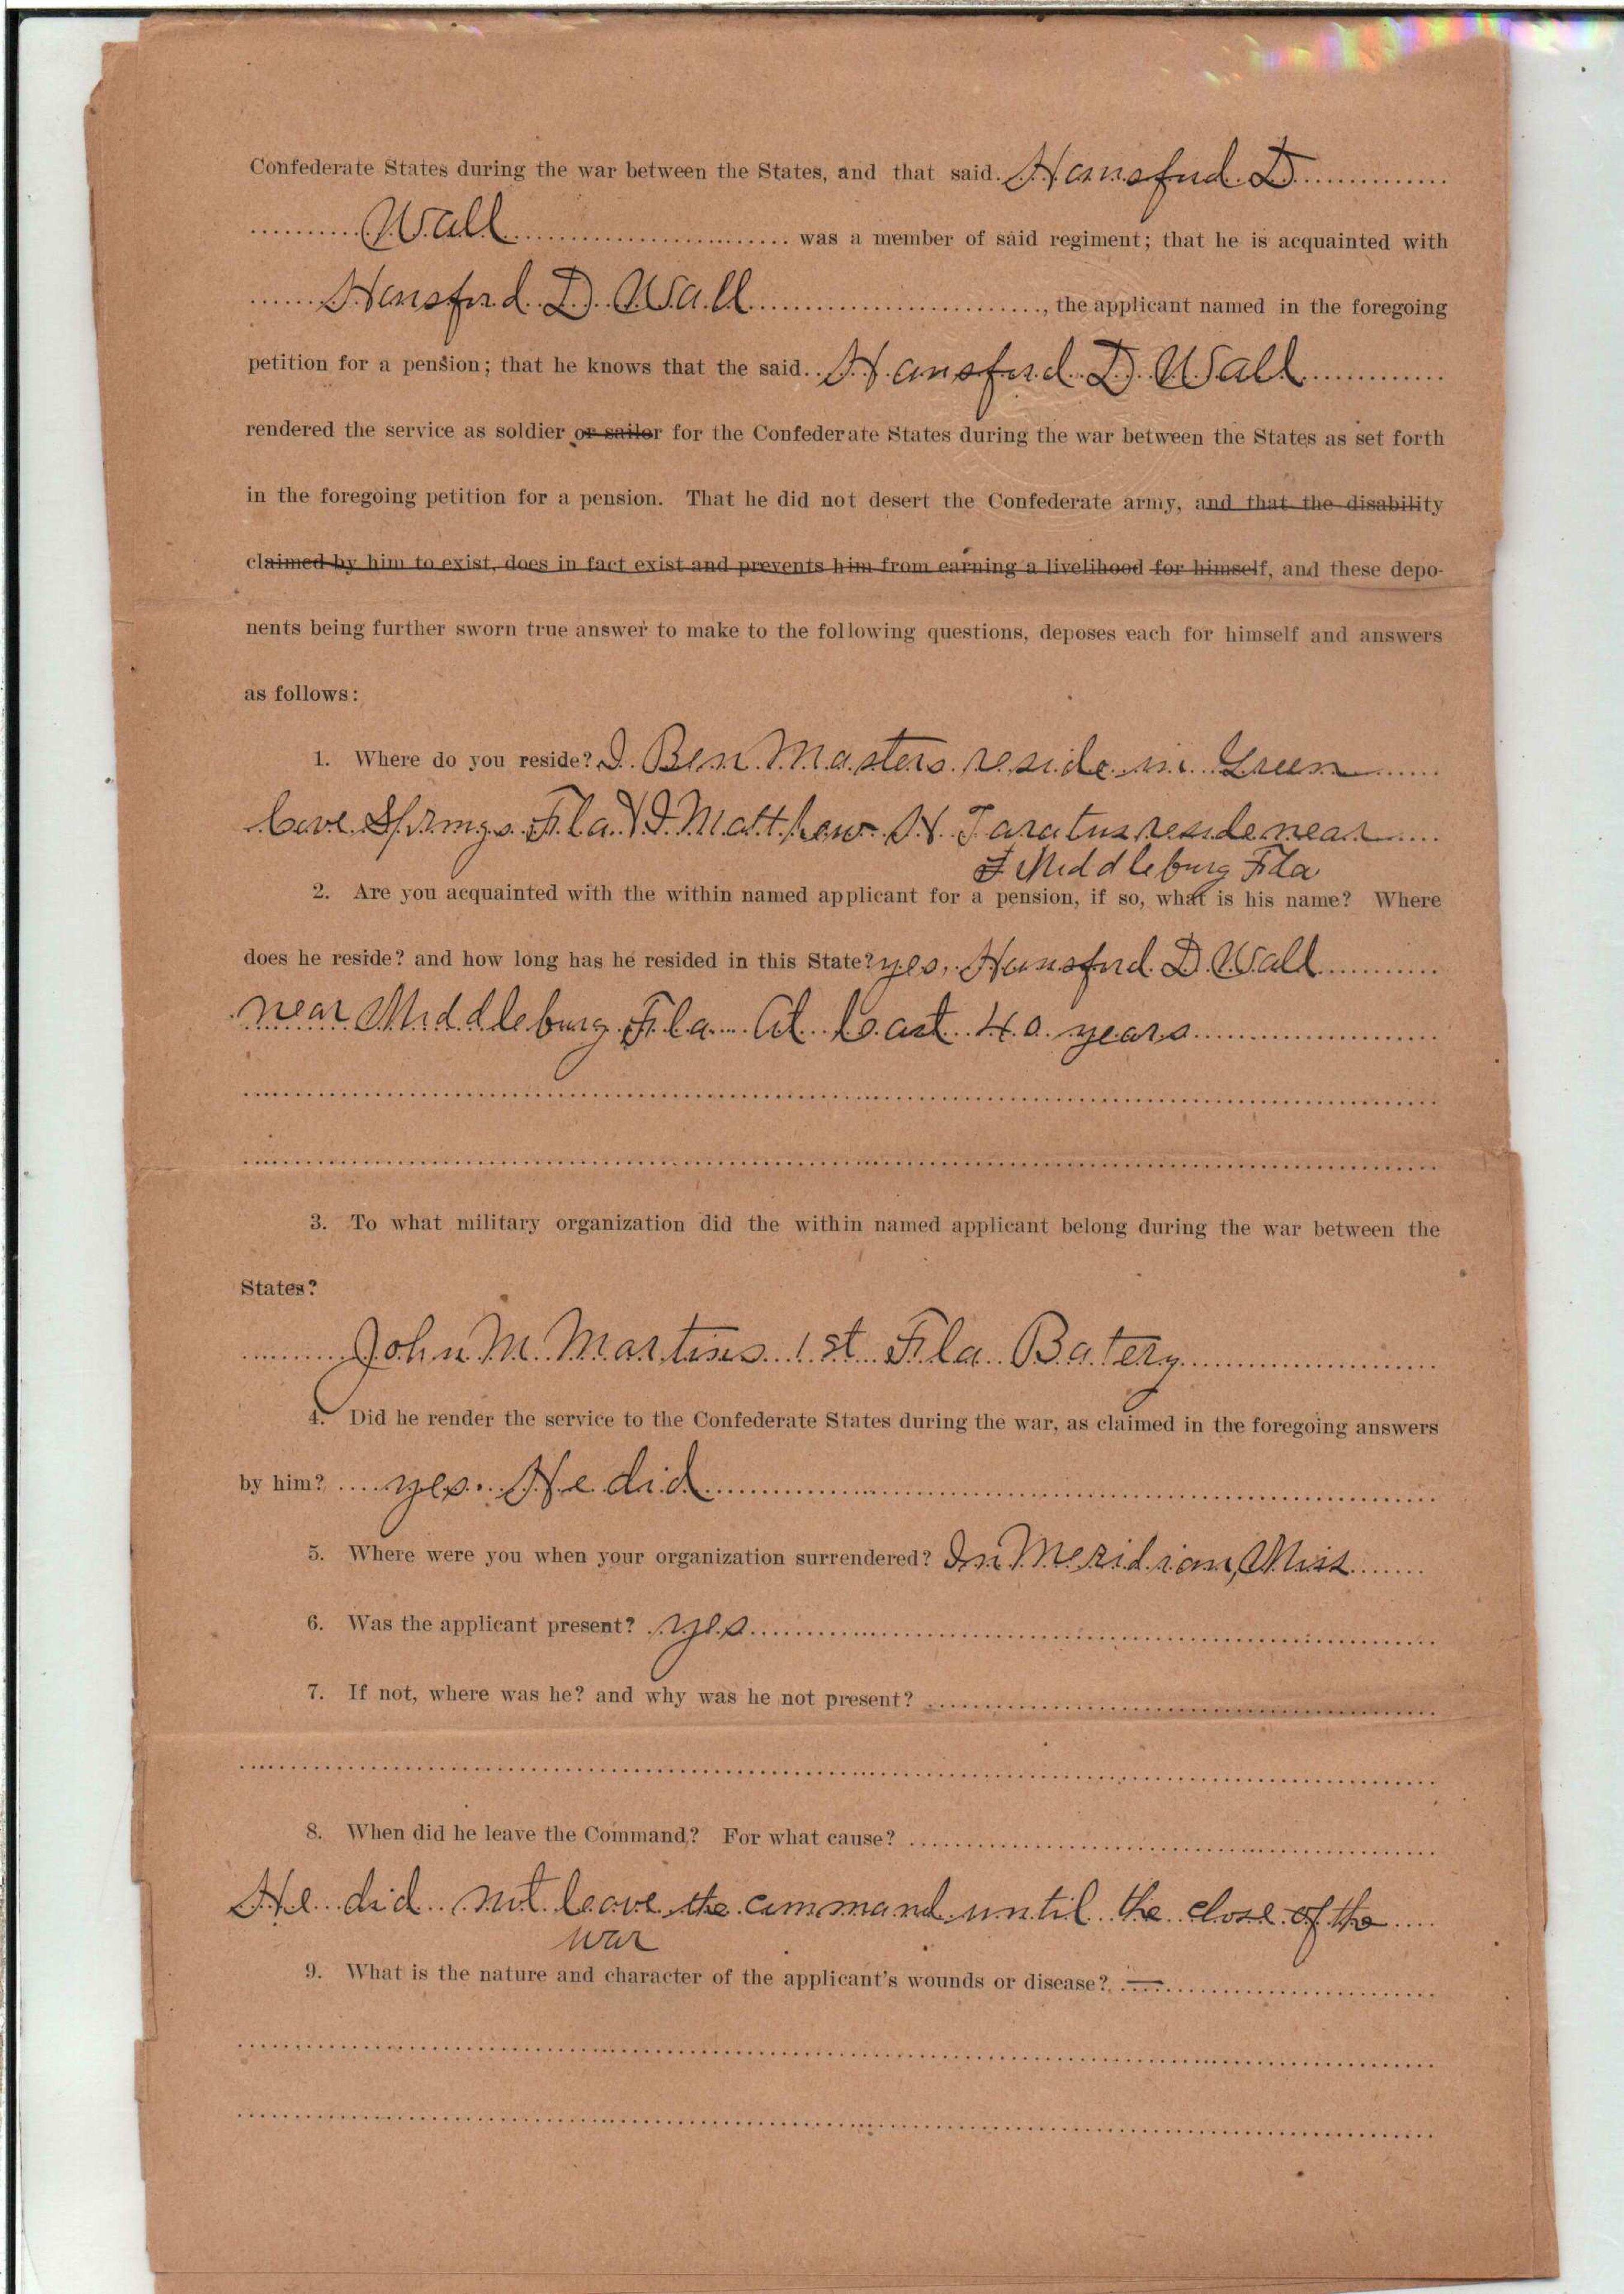 Confederate States during the war between the States, and that said Hansford D
Wall was a member of said regiment; that he is acquainted with
Hansford D. Wall, the applicant named in the foregoing
petition for a pension; that he knows that the said Hansford D. Wall
rendered the service as soldier or sailor for the Confederate States during the war between the States as set forth
in the foregoing petition for a pension. That he did not desert the Confederate army, and that the disability
claimed by him to exist, does in fact exist and prevents him from earning a livelihood for himself, and these depo-
nents being further sworn true answer to make to the following questions, deposes each for himself and answers
as follows:
1. Where do you reside? I Ben Masters reside in Green
Cove Springs Fla & I Matthew H. reside near
Middleburg Fla
2. Are you acquainted with the within named applicant for a pension, if so, what is his name? Where
does he reside? and how long has he resided in this State? yes, Hansford D. Wall
near Middleburg Fla. At least 40 years
3. To what military organization did the within named applicant belong during the war between the
States?
John M. Martins 1st Fla Batery
4. Did he render the service to the Confederate States during the war, as claimed in the foregoing answers
by him? yes. He did
5. Where were you when your organization surrendered? In Meridian, Miss
6. Was the applicant present? yes
7. If not, where was he? and why was he not present?
8. When did he leave the Command? For what cause?
He did not leave the command until the close of the
war
9. What is the nature and character of the applicant's wounds or disease? —